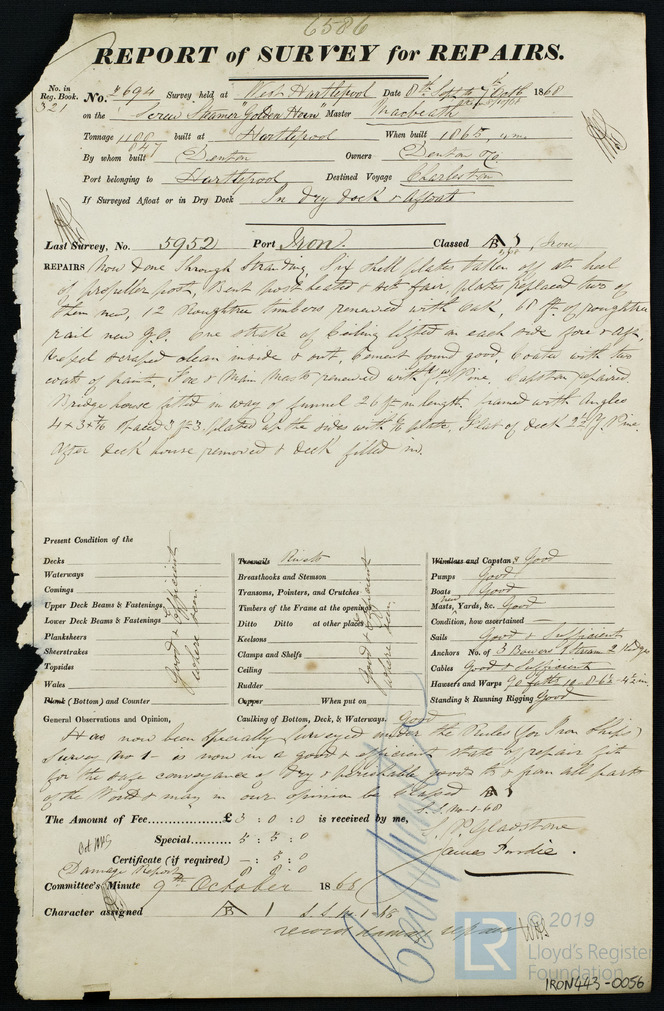 6586
REPORT of SURVEY for REPAIRS.
No. in Reg. Book. 321
No. 2694 Survey held at West Hartlepool Date 8th Sept to 7th Octb 1868
on the Screw Steamer "Golden Horn" Master Macbeath
Tonnage 1188 847 built at Hartlepool When built 1865
By whom built Denton Owners Denton & Co.
Port belonging to Hartlepool Destined Voyage Charleston
If Surveyed Afloat or in Dry Dock In dry dock & afloat
Last Survey, No. 5952 Port Iron. Classed A 1 Iron
REPAIRS Now done through Stranding, Six shell plates taken off at heel
of propeller post, Bent post heated & set fair, plates replaced two of
them new, 12 Roughtree timbers renewed with Oak, 65 ft. of roughtree
rail new One strake of Ceiling lifted on each side fore & aft,
scraped clean inside & out, Cement found good, Coated with two
coats of paint, Fore & Main Masts renewed with Pine, Capstan repaired
Bridge house fitted in way of funnel 26 ft in length, framed with angles
4 x 3 x 7/16 spaced 3 ft 3, plated at the sides with plate, Flat of deck 2½ Y. Pine.
After deck house removed & deck filled in.
Present Condition of the
Decks
Waterways
Comings
Upper Deck Beams & Fastenings
Lower Deck Beams & Fastenings
Planksheers
Sheerstrakes
Topsides
Wales
Plank (Bottom) and Counter
Good & Efficient where seen.
Treenails Rivets
Breasthooks and Stemson
Transoms, Pointers, and Crutches
Timbers of the Frame at the openings
Ditto Ditto at other places
Keelsons
Clamps and Shelfs
Ceiling
Rudder
Copper When put on
Good & Efficient where seen.
Windlass and Capstan s Good
Pumps Good
Boats Good
Masts, Yards, &c. new Good
Condition, how ascertained —
Sails Good & Sufficient
Anchors No. of 3 Bowers 1 Stream 2 Kedges
Cables Good & Sufficient
Hawsers and Warps 90 faths
Standing & Running Rigging Good
General Observations and Opinion, Caulking of Bottom, Deck, & Waterways. Good
Has now been Specially Surveyed under the Rules (for Iron Ships)
Survey No 1 - is now in a good & efficient state of repair fit
for the safe conveyance of dry & perishable goods to & from all parts
of the World & may in our opinion be Classed A 1
S.S. No. 1-68
The Amount of Fee............£ 3 : 0 : 0 is received by me,
Special......... 5 : 5 : 0
Certificate (if required) — : 5 : 0
Damage Report
J.P. Gladstone
James Purdie.
Committee's Minute 9th October 1868
Character assigned A 1 S.S. No. 1-68
record damage repairs
© 2019
LR
Lloyd's Register
Foundation
IRON443-0056